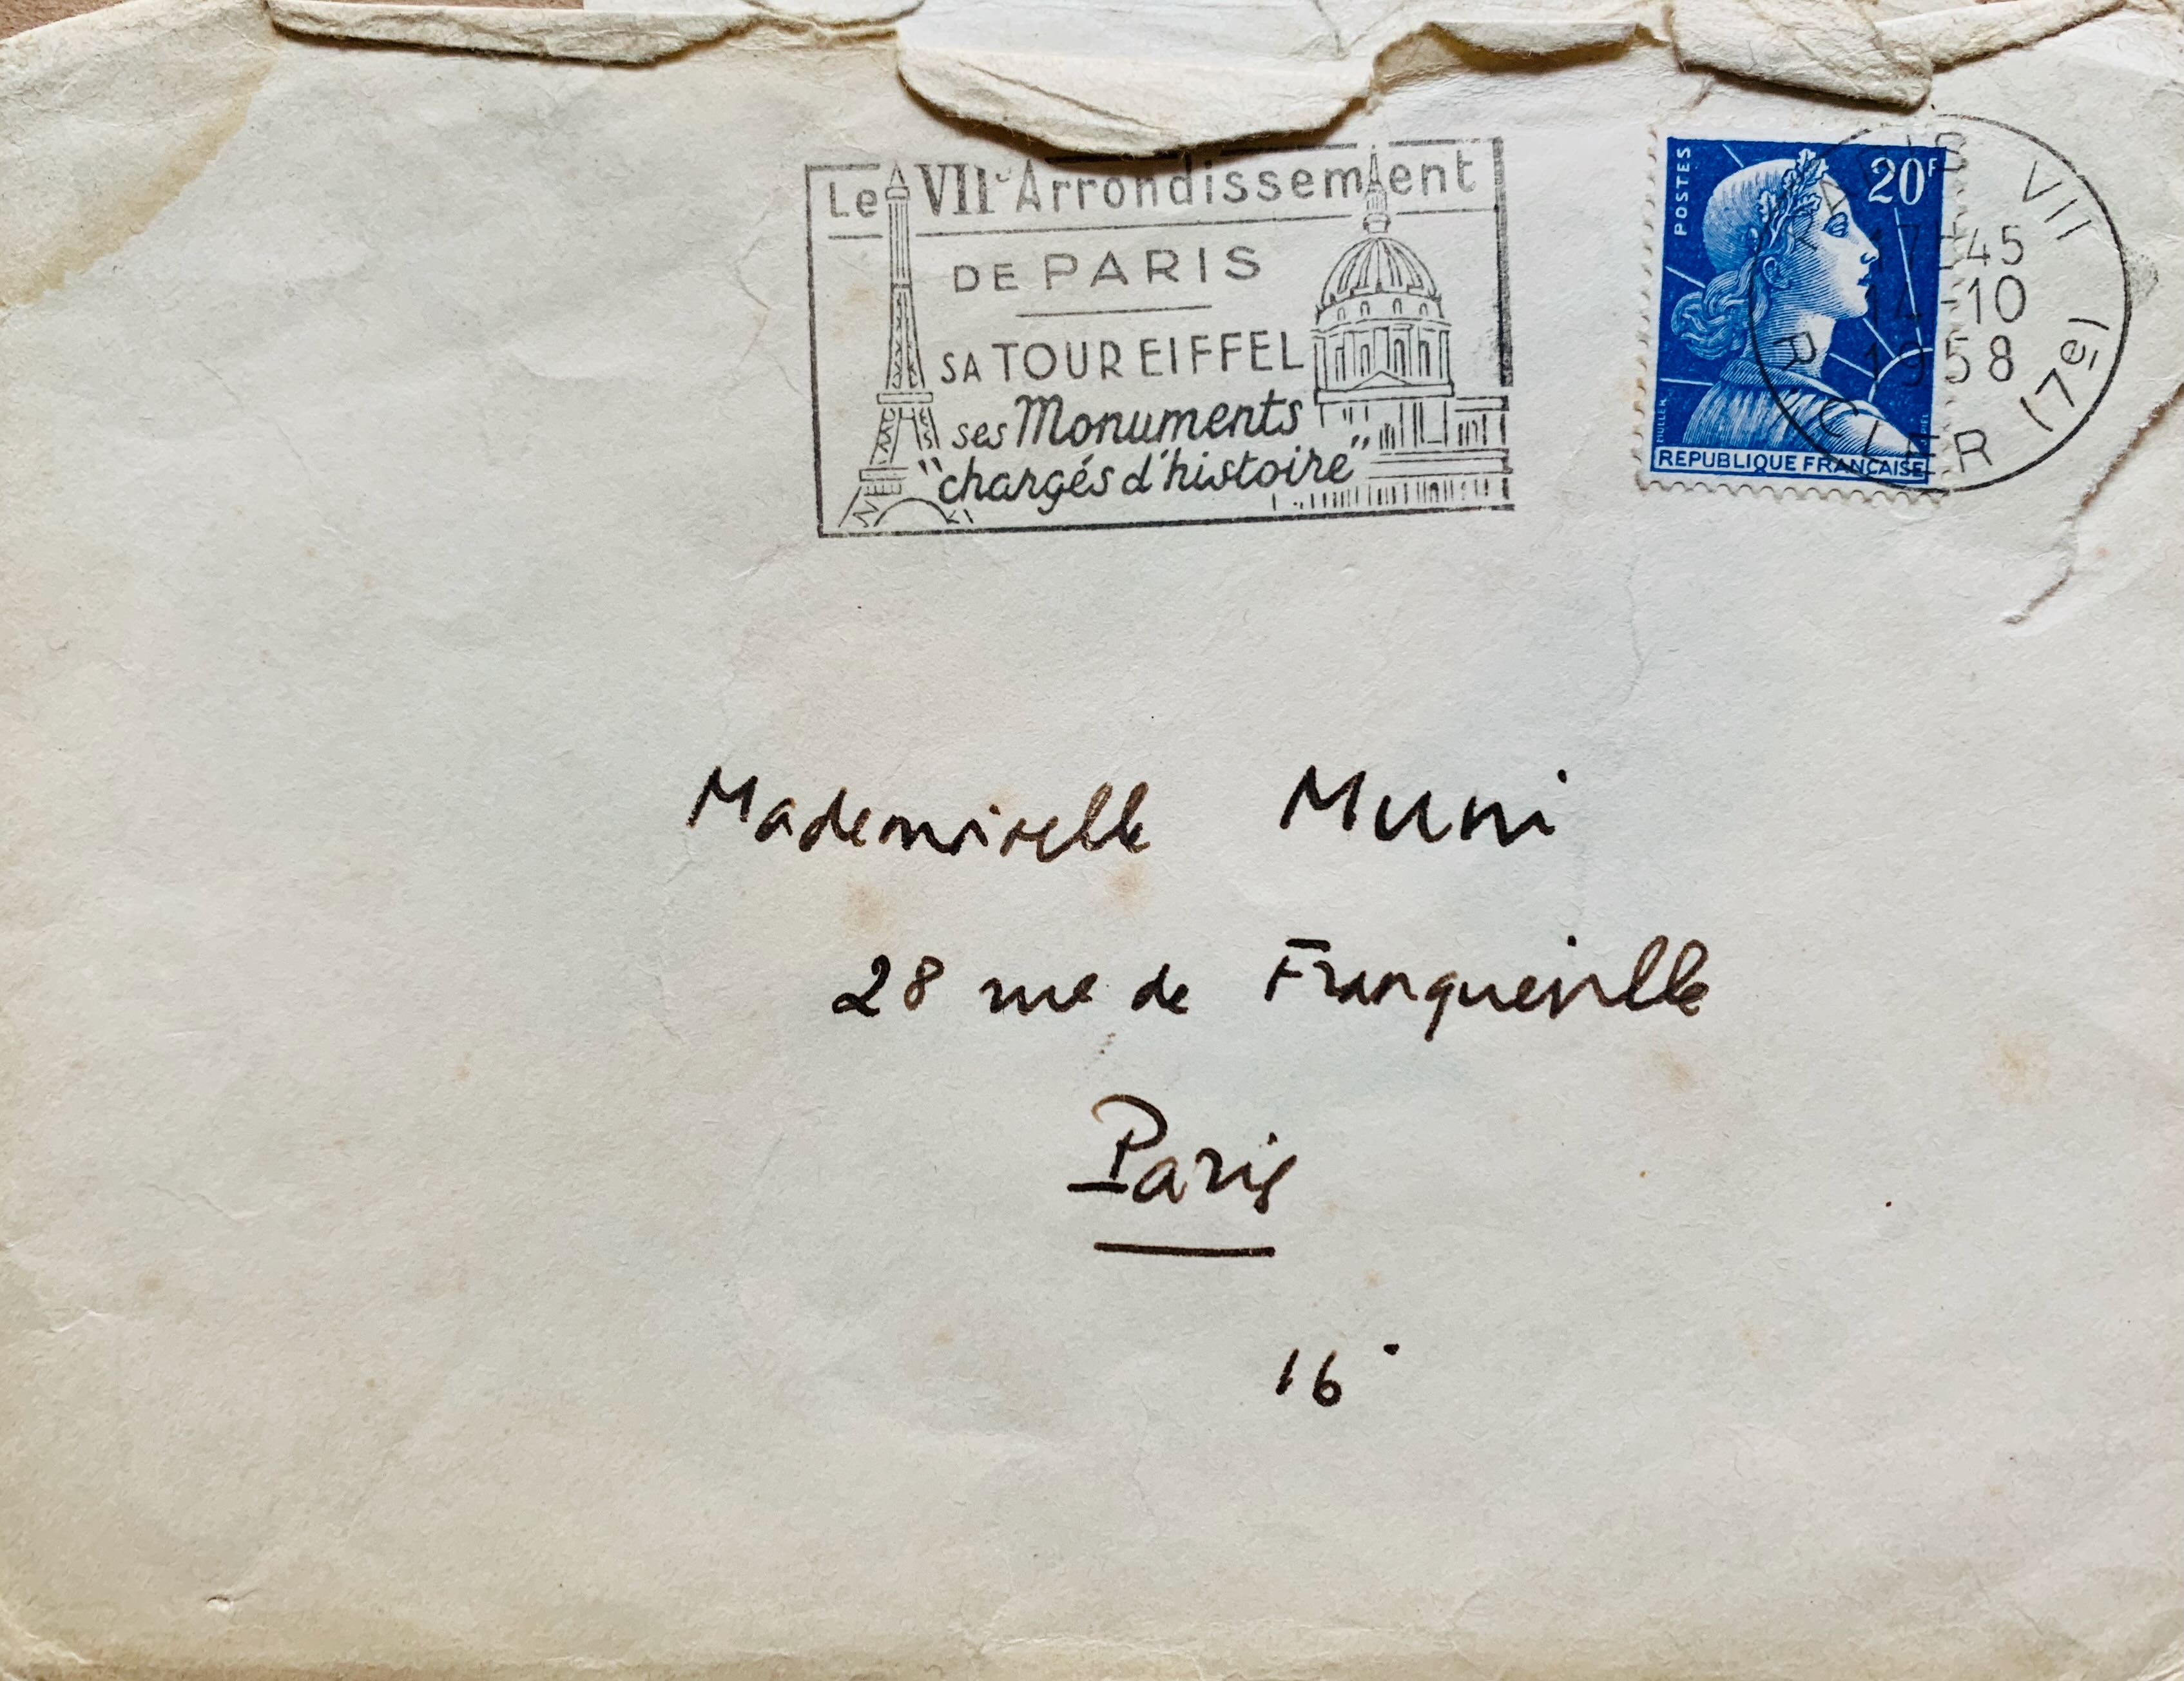 Le VIIe Arrondissement
DE PARIS
SA TOUR EIFFEL
ses Monuments
"chargés d'histoire"
POSTES
20F
MULLER
REPUBLIQUE FRANÇAISE
PARIS VII
17-45
14-10
1958
R CLER (7e)
Mademoiselle Muni
28 rue de Franqueville
Paris
16e